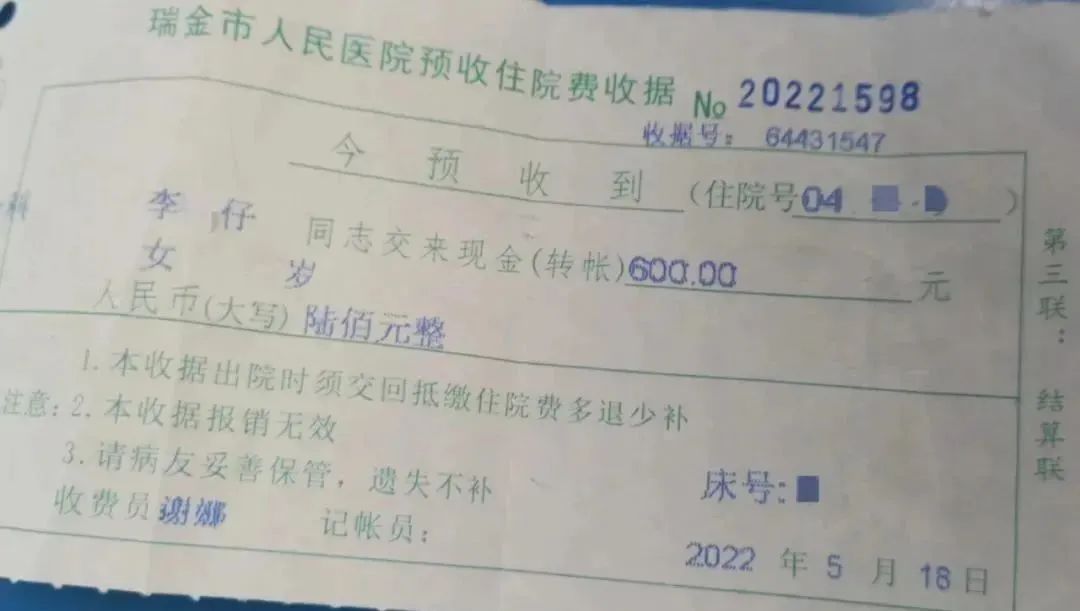 瑞金市人民医院预收住院费收据 No 20221598
收据号: 64431547
今预收到 (住院号04 )
李 仔 同志交来现金(转帐)600.00 元
女 岁
人民币(大写) 陆佰元整
注意: 1.本收据出院时须交回抵缴住院费多退少补
2.本收据报销无效
3.请病友妥善保管，遗失不补
床号:
收费员 谢娜 记帐员:
2022 年 5 月 18 日
第三联: 结算联